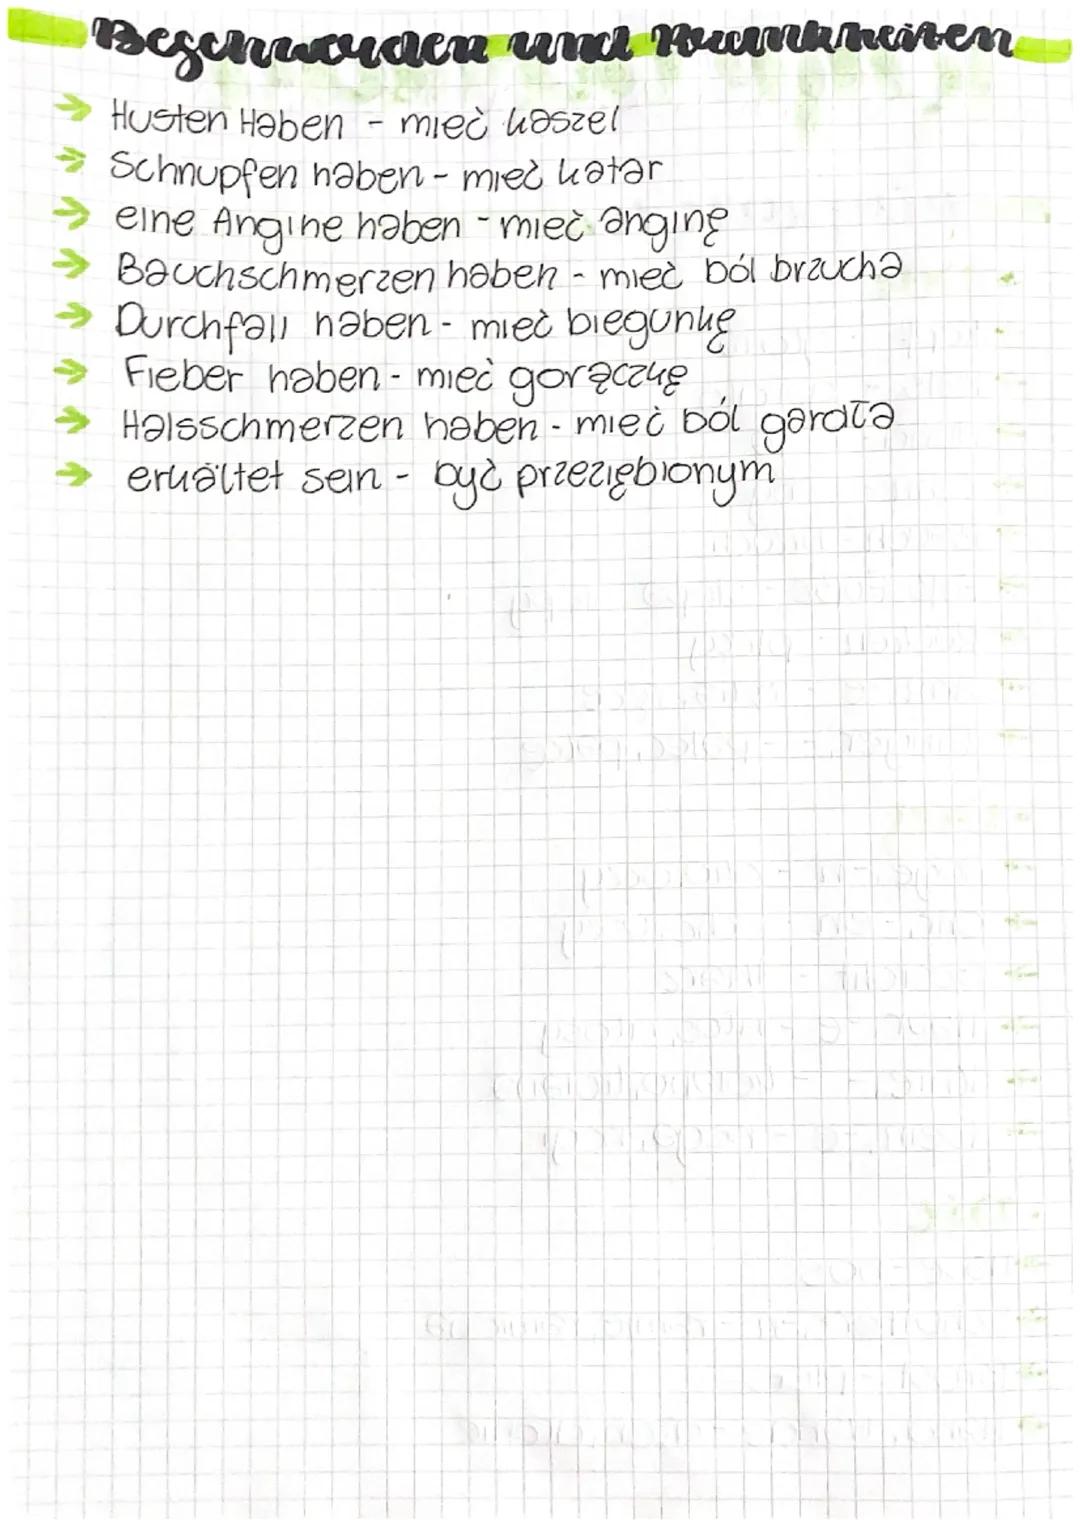 Beschwerden und Krankheiten
→ Husten Haben - mieć kaszel
→ Schnupfen haben - mieć katar
→ eine Angine haben - mieć anginę
→ Bauchschmerzen haben - mieć ból brzucha
→ Durchfall haben - mieć biegunkę
→ Fieber haben - mieć gorączkę
→ Halsschmerzen haben - mieć ból gardła
→ erkältet sein - być przeziębionym